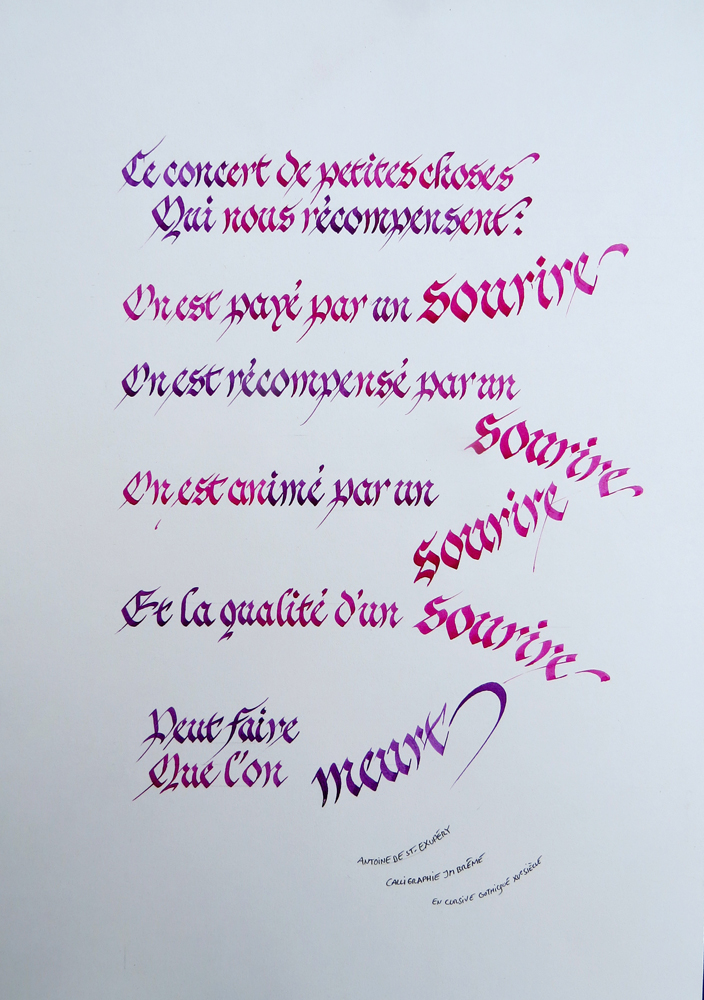 Ce concert de petites choses
Qui nous récompensent :
On est payé par un sourire
On est récompensé par un
sourire
On est animé par un
sourire
Et la qualité d'un sourire
Peut faire
Que l'on meurt
ANTOINE DE ST-EXUPÉRY
CALLIGRAPHIE JM BRÊME
EN CURSIVE GOTHIQUE XVE SIÈCLE